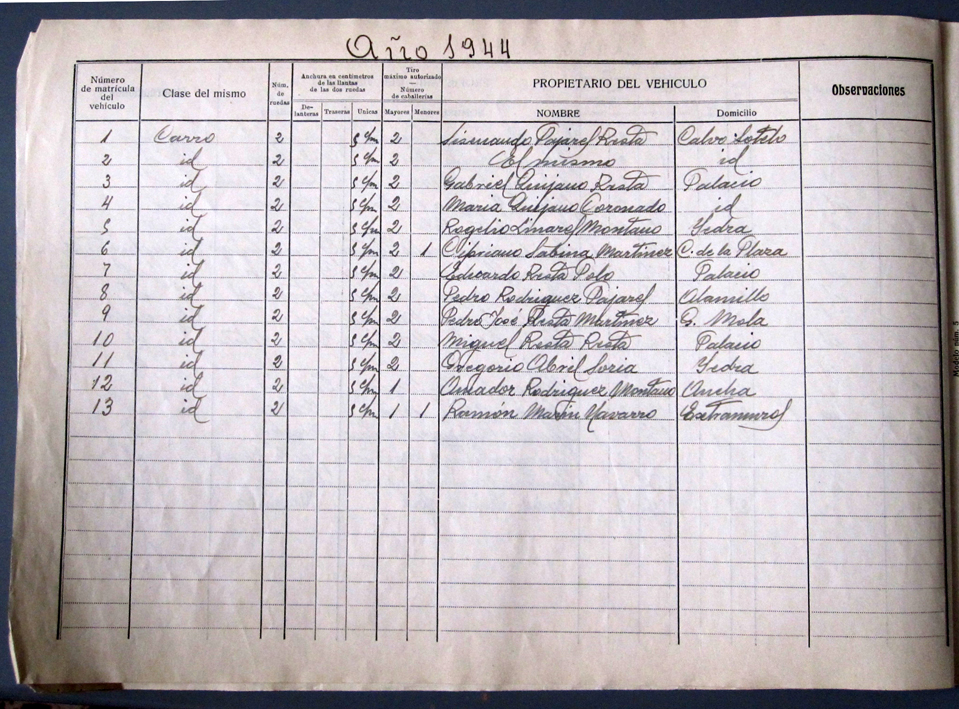 Año 1944
Número de matrícula del vehículo
Clase del mismo
Núm. de ruedas
Anchura en centímetros de las llantas de las dos ruedas
De- lanteras
Traseras
Unicas
Tiro máximo autorizado — Número de caballerías
Mayores
Menores
PROPIETARIO DEL VEHICULO
NOMBRE
Domicilio
Observaciones
1 Carro 2 5 c/m 2 Sisenando Pajares Rista Calvo Sotelo
2 id 2 5 c/m 2 El mismo id
3 id 2 5 c/m 2 Gabriel Quijano Rista Palacio
4 id 2 5 c/m 2 Maria Quijano Coronado id
5 id 2 5 c/m 2 Rogelio Linares Montano
6 id 2 5 c/m 2 1 Cipriano Sabina Martinez C. de la Plaza
7 id 2 5 c/m 2 Eduardo Rista Polo Palacio
8 id 2 5 c/m 2 Pedro Rodriguez Pajares Alamillo
9 id 2 5 c/m 2 Pedro José Rista Martinez G. Mola
10 id 2 5 c/m 2 Miguel Rista Rista Palacio
11 id 2 5 c/m 2 Gregorio Abril Soria
12 id 2 5 c/m 1 Amador Rodriguez Montano Ancha
13 id 2 5 c/m 1 1 Ramón Martin Navarro Extramuros
Modelo núm. 5